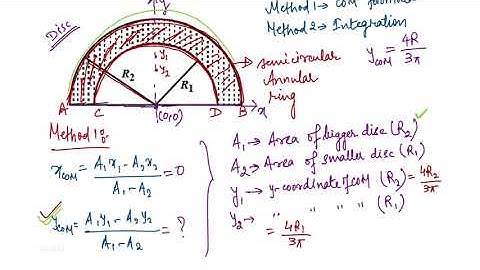 Disc
y
Method 1 → COM formula
Method 2 → Integration
y_COM = 4R/3π
y₁
y₂
R₂
R₁
→ semicircular
Annular
ring
A
C
(0,0)
D
B
x
Method 1:
x_COM = A₁x₁ - A₂x₂ / A₁ - A₂ = 0
y_COM = A₁y₁ - A₂y₂ / A₁ - A₂ = ?
A₁ → Area of bigger disc (R₂)
A₂ → Area of smaller disc (R₁)
y₁ → y-coordinate of COM (R₂) = 4R₂/3π
y₂ → " " " " (R₁)
= 4R₁/3π